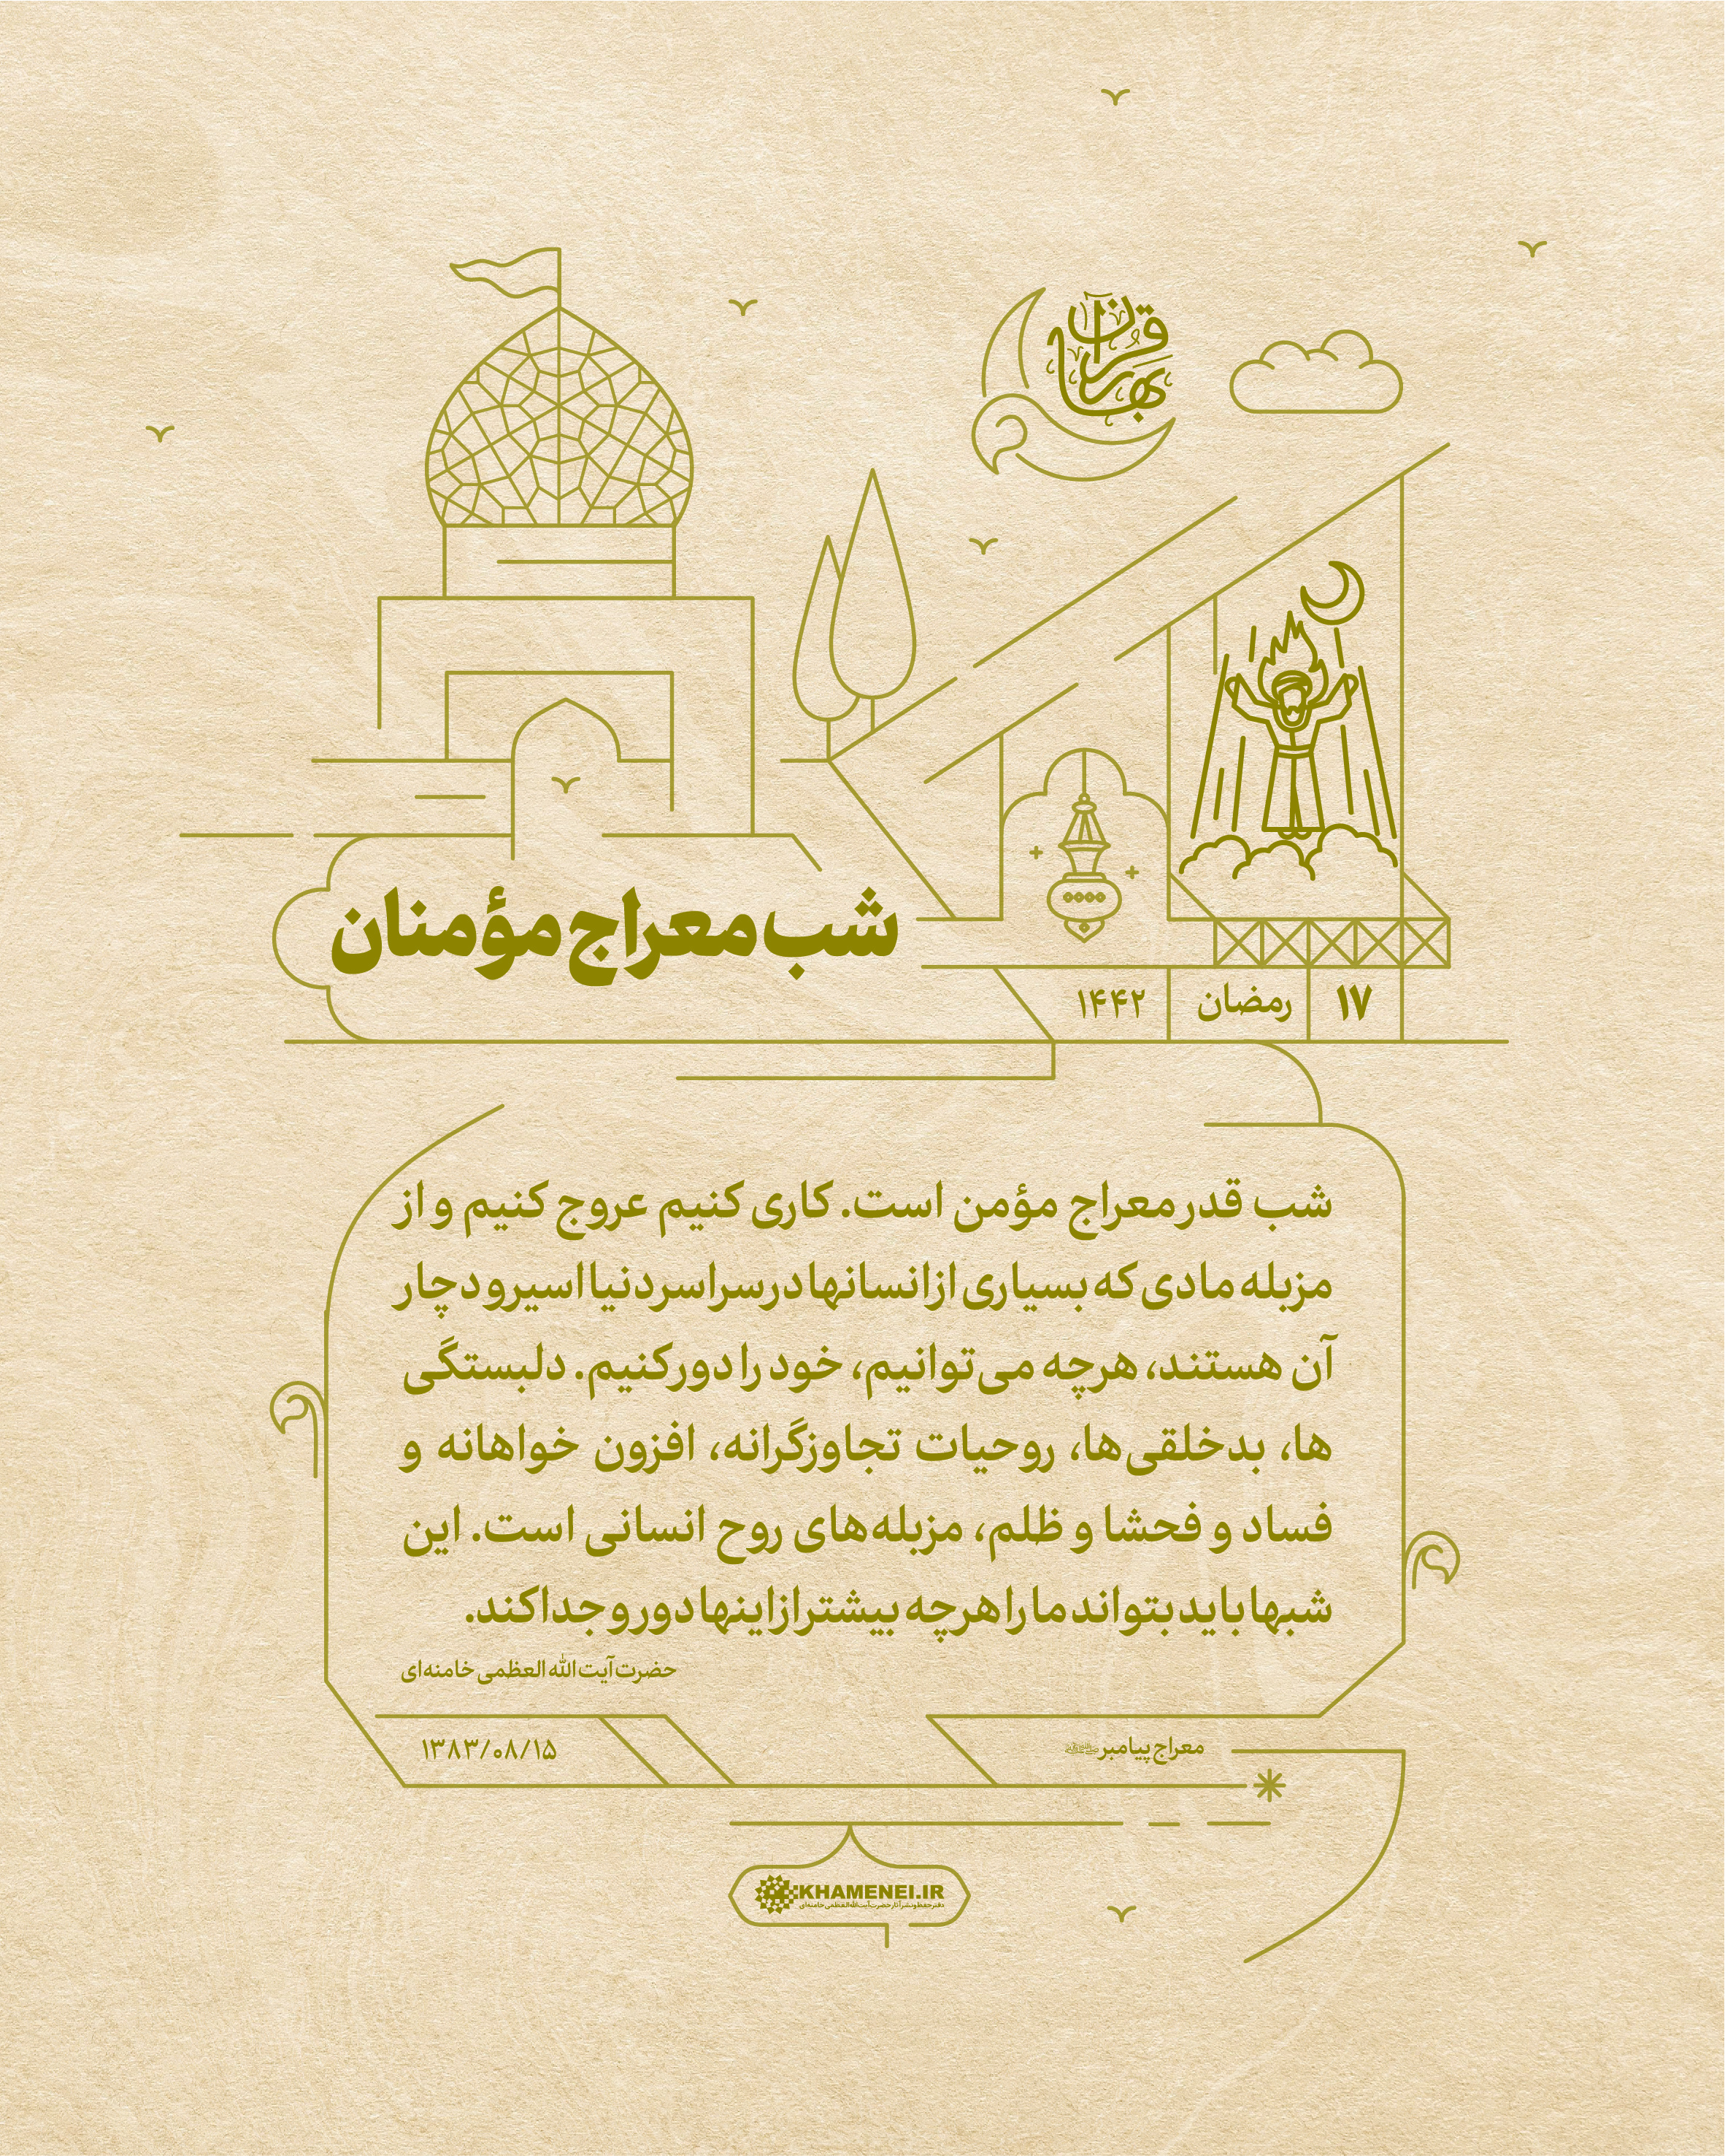 بهار قرآن
شب معراج مؤمنان
۱۷ رمضان ۱۴۴۲
شب قدر معراج مؤمن است. کاری کنیم عروج کنیم و از
مزبله مادی که بسیاری از انسانها در سراسر دنیا اسیر و دچار
آن هستند، هرچه می‌توانیم، خود را دور کنیم. دلبستگی
ها، بدخلقی‌ها، روحیات تجاوزگرانه، افزون خواهانه و
فساد و فحشا و ظلم، مزبله‌های روح انسانی است. این
شبها باید بتواند ما را هرچه بیشتر از اینها دور و جدا کند.
حضرت آیت الله العظمی خامنه‌ای
معراج پیامبر ﷺ
۱۳۸۳/۰۸/۱۵
KHAMENEI.IR
دفتر حفظ و نشر آثار حضرت آیت‌الله‌العظمی خامنه‌ای